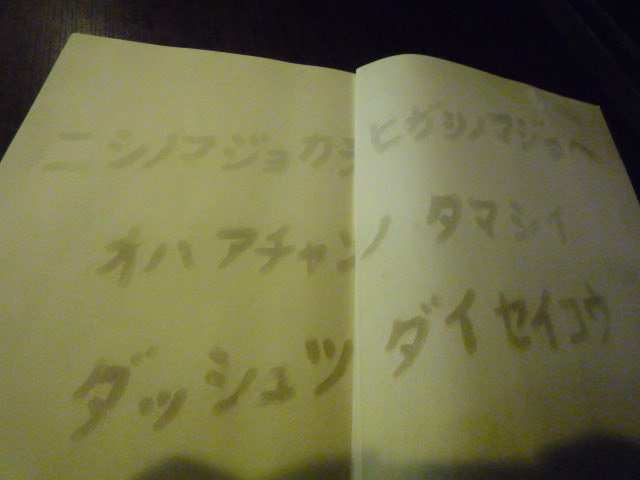 ニシノマジョカラヒガシノマジョヘ
オバアチャンノタマシイ
ダッシュツダイセイコウ